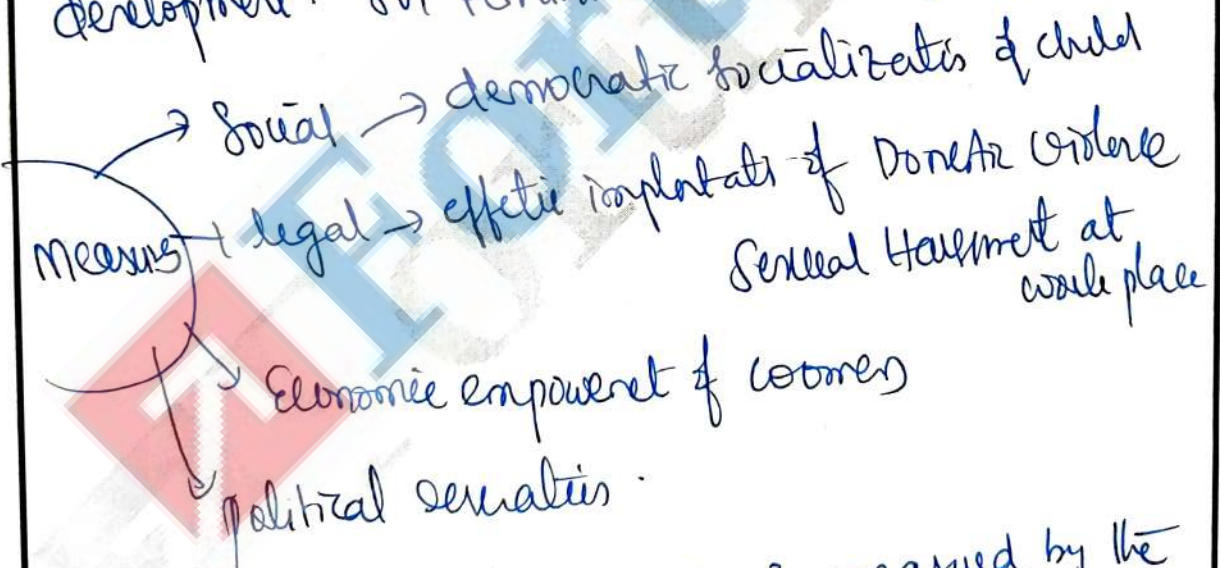 development.
Social → democratic socializatis of child
Measurs → legal → effetic implentats of Domestic Violence
Sexual Harrsment at
work place
Economic empowerent of women
political
measured by the